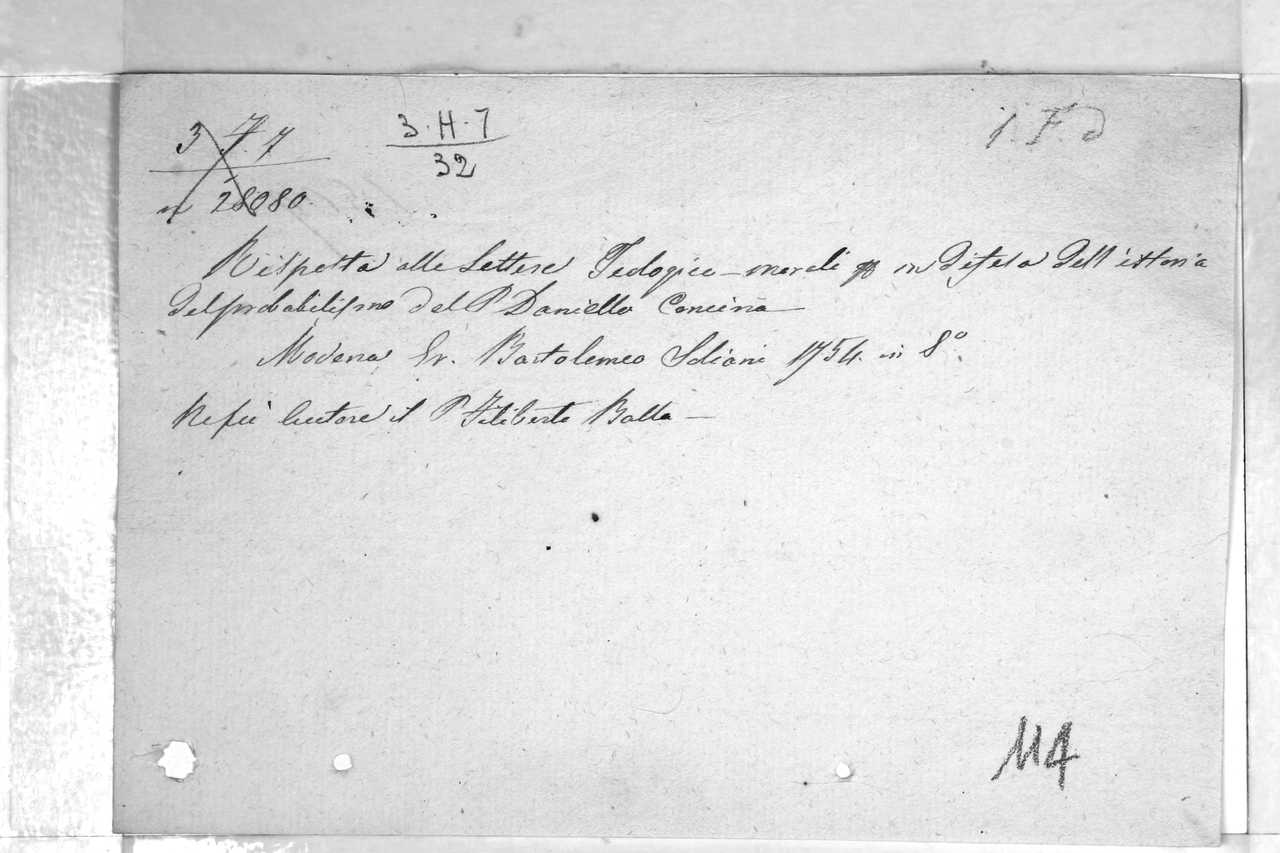 3 7. 7
n 28080.
3.H.7
32
1. F. d
Risposta alle Lettere Teologico-morali in difesa dell'istoria
del probabilismo del P Daniello Concina
Modena Er. Bartolomeo Soliani 1754. in 8º
Ne fu autore il P Filiberto Balla
114